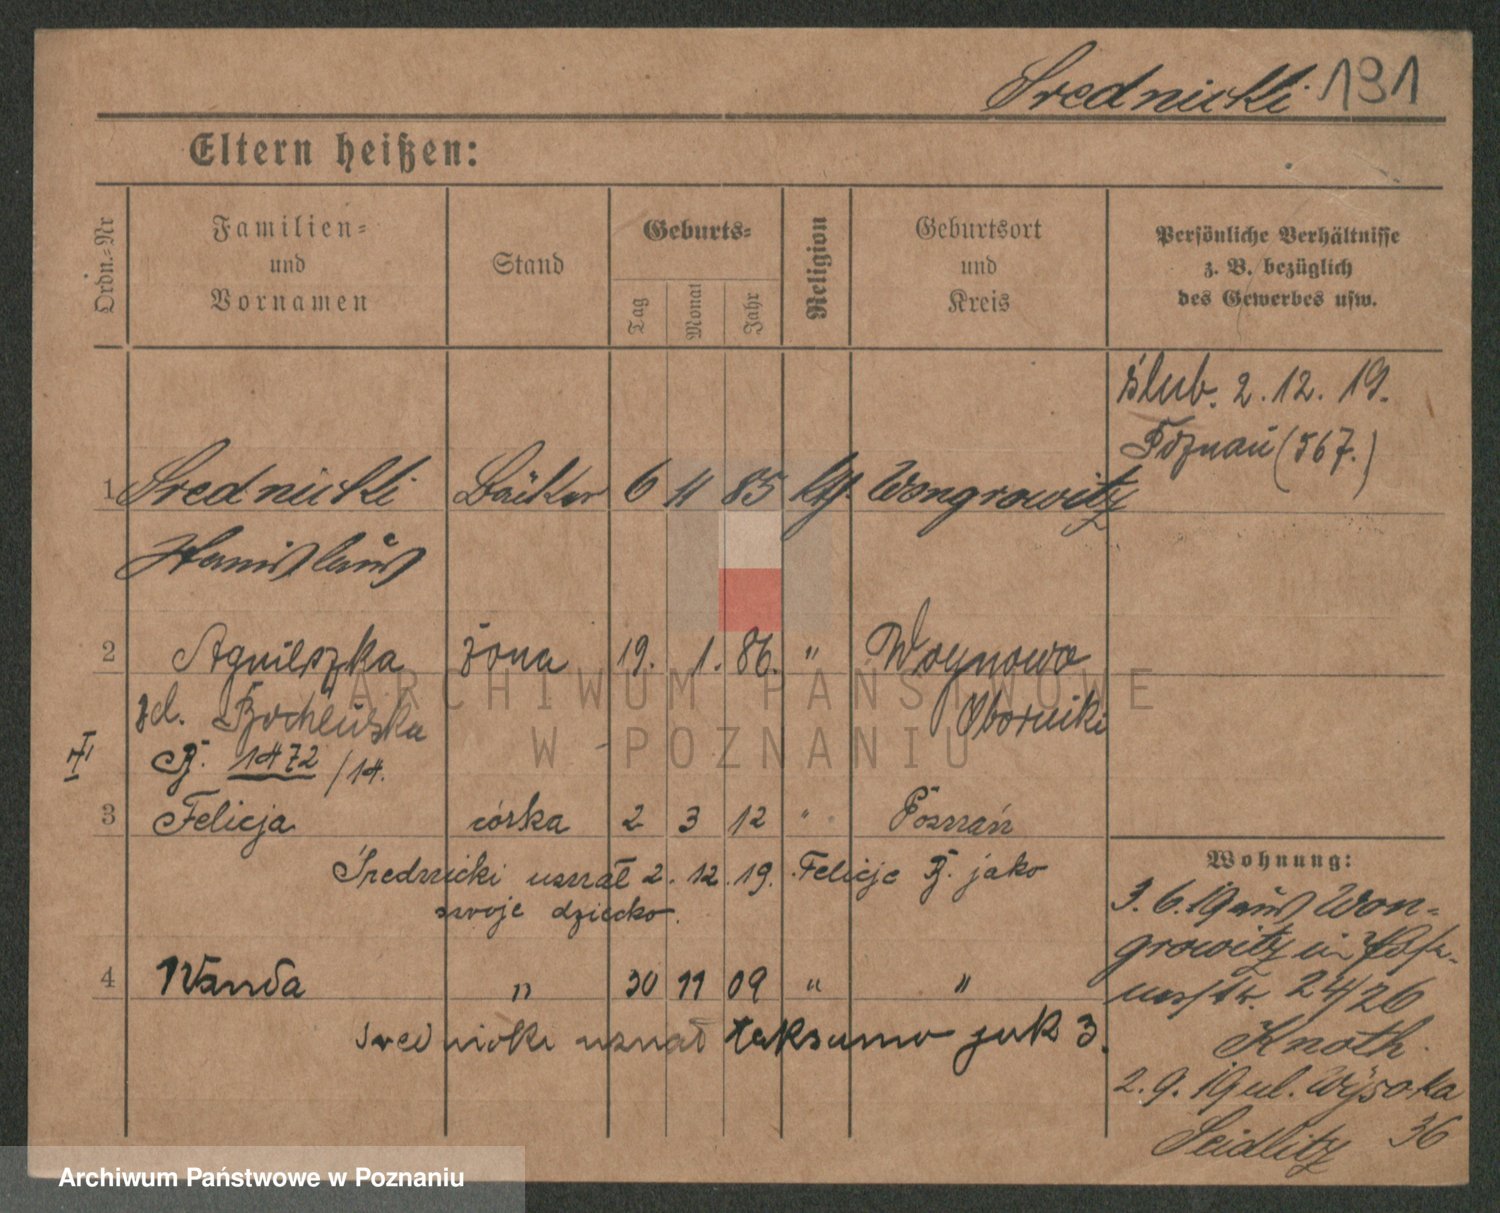 Srednicki 191
Eltern heißen:
Ordn.-Nr
Familien-
und
Vornamen
Stand
Geburts-
Tag
Monat
Jahr
Religion
Geburtsort
und
Kreis
Persönliche Verhältnisse
z. B. bezüglich
des Gewerbes usw.
ślub. 2. 12. 19.
Poznań (567.)
1 Srednicki Bäcker 6 11 85 kth. Wongrowitz
Stanislaus
2 Agnieszka żona 19. 1. 86. " Woynowo
zd. Oborniki
1472/14.
3 Felicja córka 2 3 12 " Poznań
Średnicki uznał 2. 12. 19. Felicję B. jako
swoje dziecko.
4 Wanda " 30 11 09 " "
Srednicki uznał taksamo jak 3.
Wohnung:
3. 6. 19 aus Won-
growitz in
24/26
Knoth.
2. 9. 19 ul. Wysoka
Seidlitz 36
ARCHIWUM PAŃSTWOWE
W POZNANIU
Archiwum Państwowe w Poznaniu